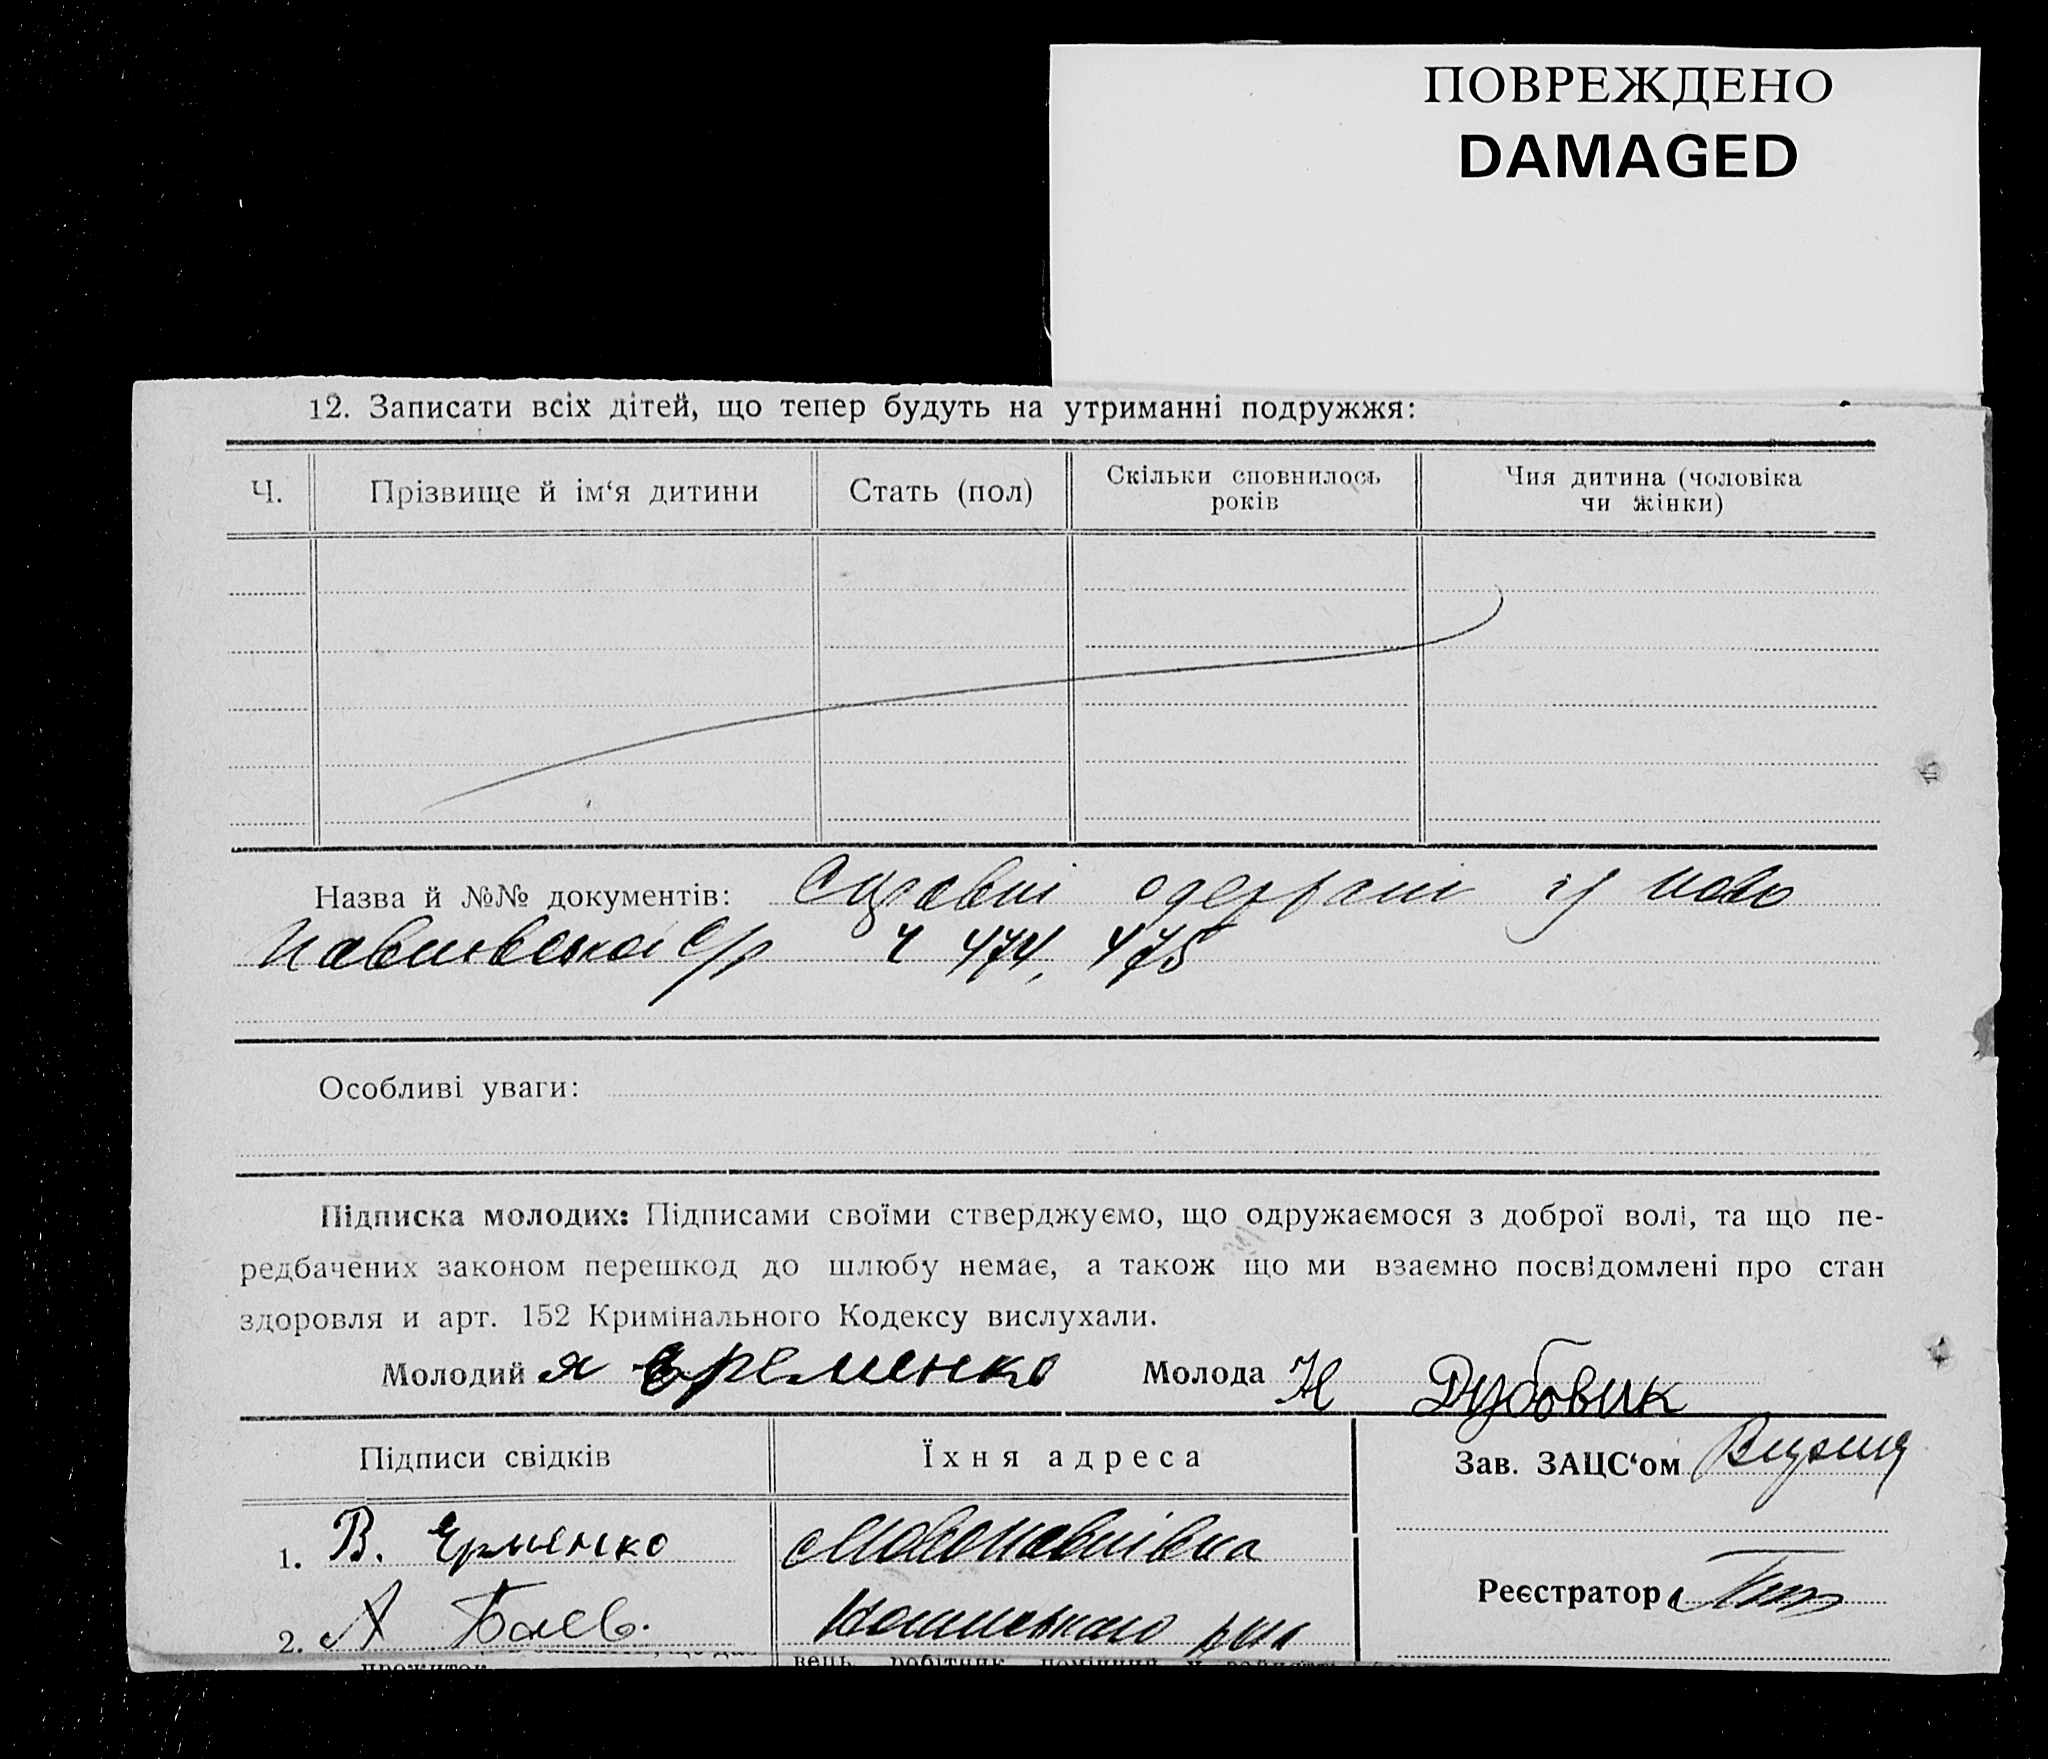 ПОВРЕЖДЕНО
DAMAGED
12. Записати всіх дітей, що тепер будуть на утриманні подружжя:
Ч.
Прізвище й ім‘я дитини
Стать (пол)
Скільки сповнилось
років
Чия дитина (чоловіка
чи жінки)
Назва й №№ документів: одержані із Ново
Павлівської с/р ч 474, 475
Особливі уваги:
Підписка молодих: Підписами своїми стверджуємо, що одружаємося з доброї волі, та що пе-
редбачених законом перешкод до шлюбу немає, а також що ми взаємно посвідомлені про стан
здоровля и арт. 152 Кримінального Кодексу вислухали.
Молодий Я Еременко Молода Н Дубовик
Підписи свідків
Їхня адреса
Зав. ЗАЦС‘ом
1. В. Ерменко
с Новопавлівка
Реєстратор
2. А Баев.
рна
прожиток
вець, робітник